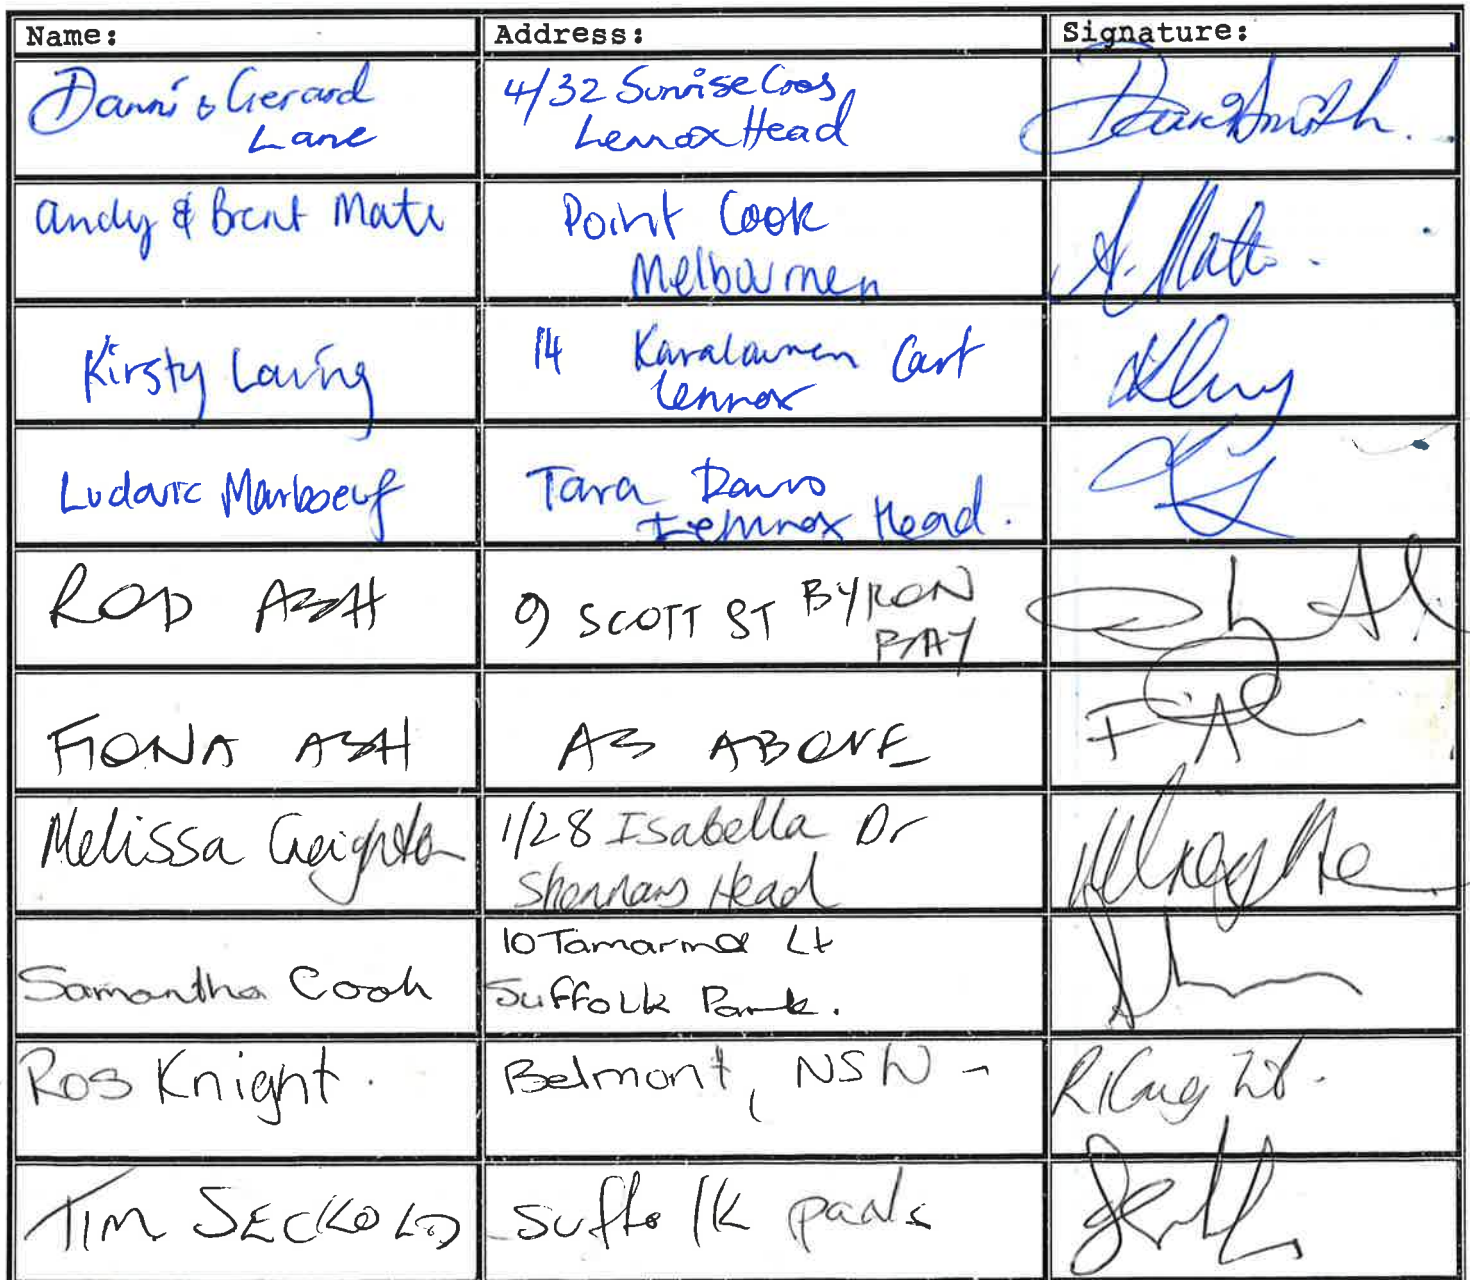 Name: Address: Signature:
Danni & Gerard
Lane
4/32 Sunrise Cres
Lennox Head
Andy & Brent Mate
Point Cook
Melbournen
A. Mate
Kirsty Laving
14 Court
Lennox
Ludovic Marboeuf
Tara Downs
Lennox Head.
ROD ASH
9 SCOTT ST BYRON
BAY
FIONA ASH
AS ABOVE
Melissa Creighton
1/28 Isabella Dr
Head
Samantha Cook
10 Tamarind Ct
Suffolk Park.
Ros Knight.
Belmont, NSW -
RKnight.
TIM SECKOLD
Suffolk park